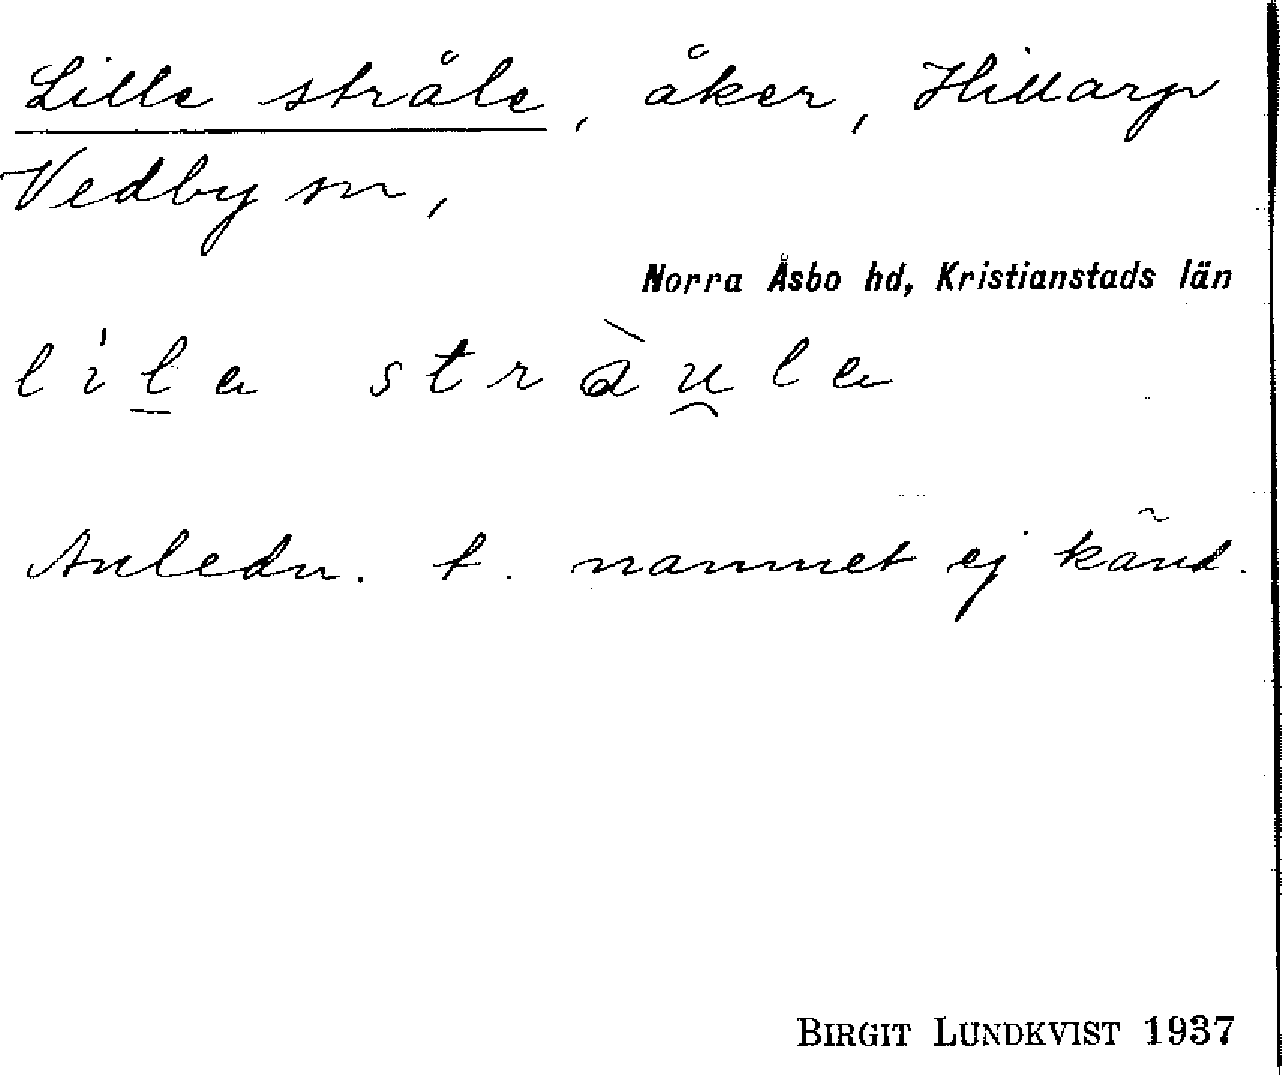 Lille stråle, åker, Hillarp
Vedby sn,
Norra Åsbo hd, Kristianstads län
lı̍l̠a stràu̯la
Anledn. t. namnet ej känd.
BIRGIT LUNDKVIST 1937